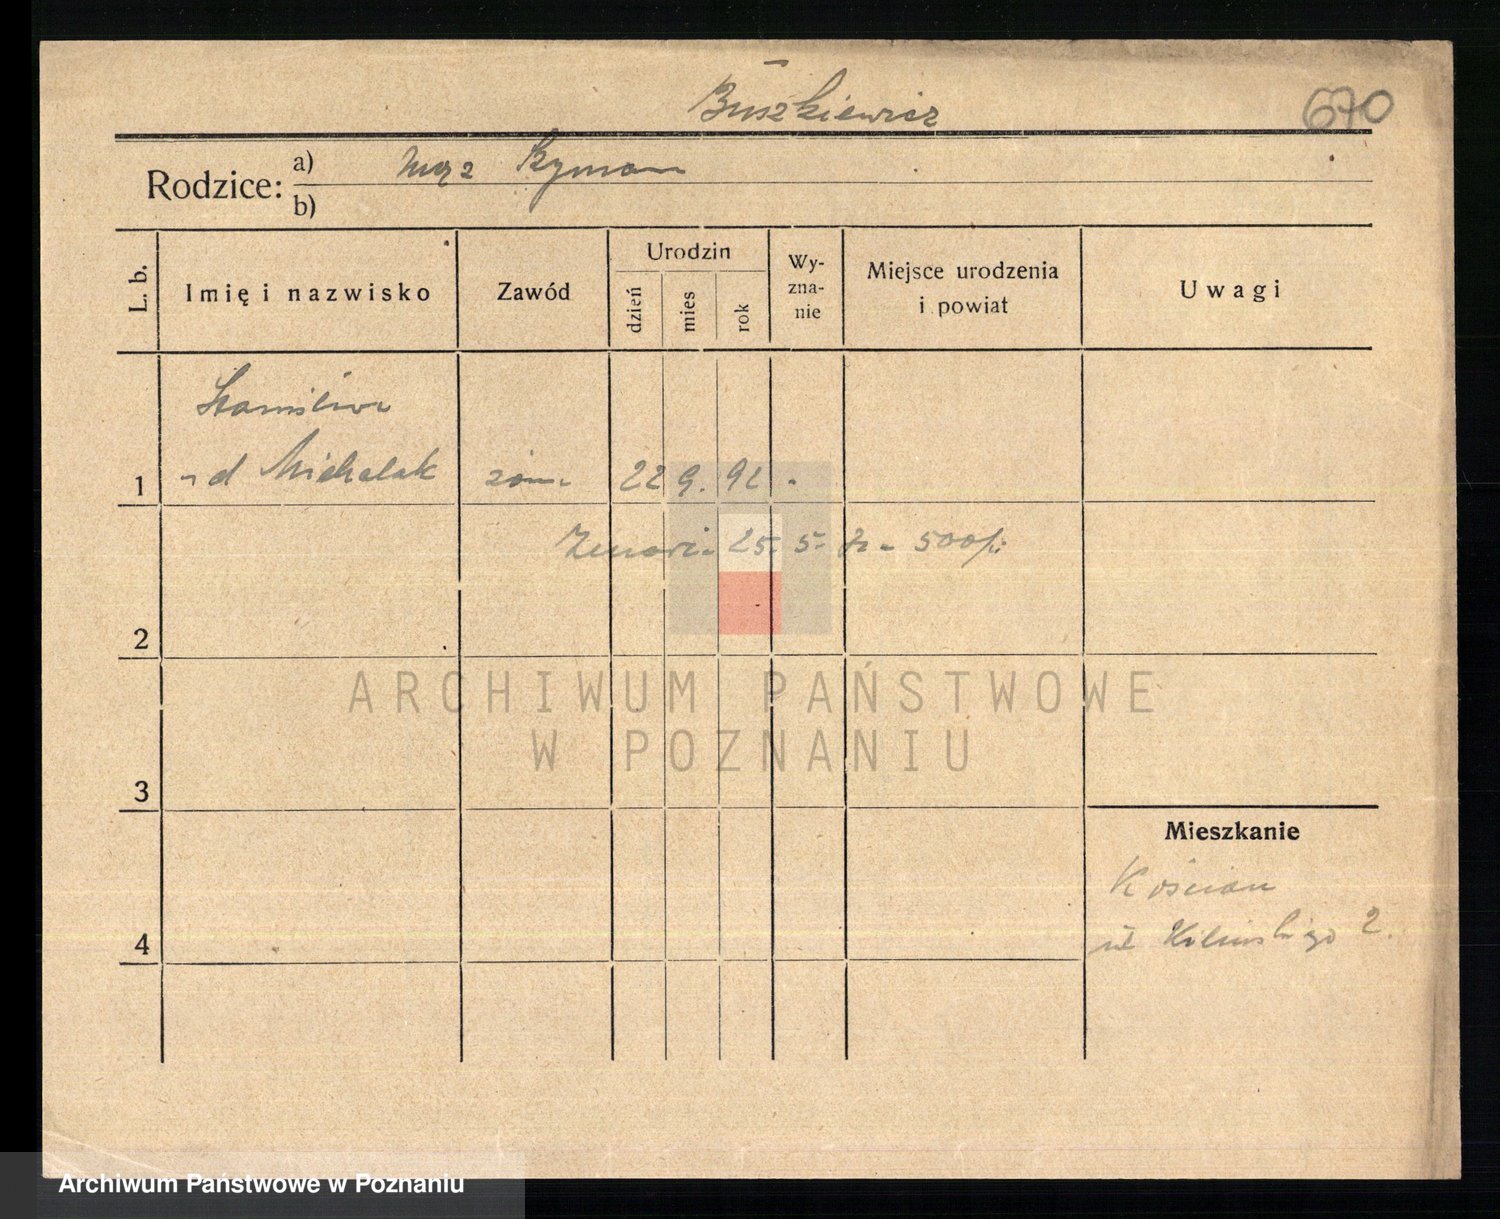 Buszkiewicz
670
Rodzice:
a) mąż Szyman
b)
L. b.
Imię i nazwisko
Zawód
Urodzin
dzień
mies
rok
Wy-
zna-
nie
Miejsce urodzenia
i powiat
Uwagi
Stanisława
1 d Michalak żona 22 9. 92 -
25. 5. 500
2
3
4
Mieszkanie
Kościan
ul Kilińskiego 2.
ARCHIWUM PAŃSTWOWE
W POZNANIU
Archiwum Państwowe w Poznaniu